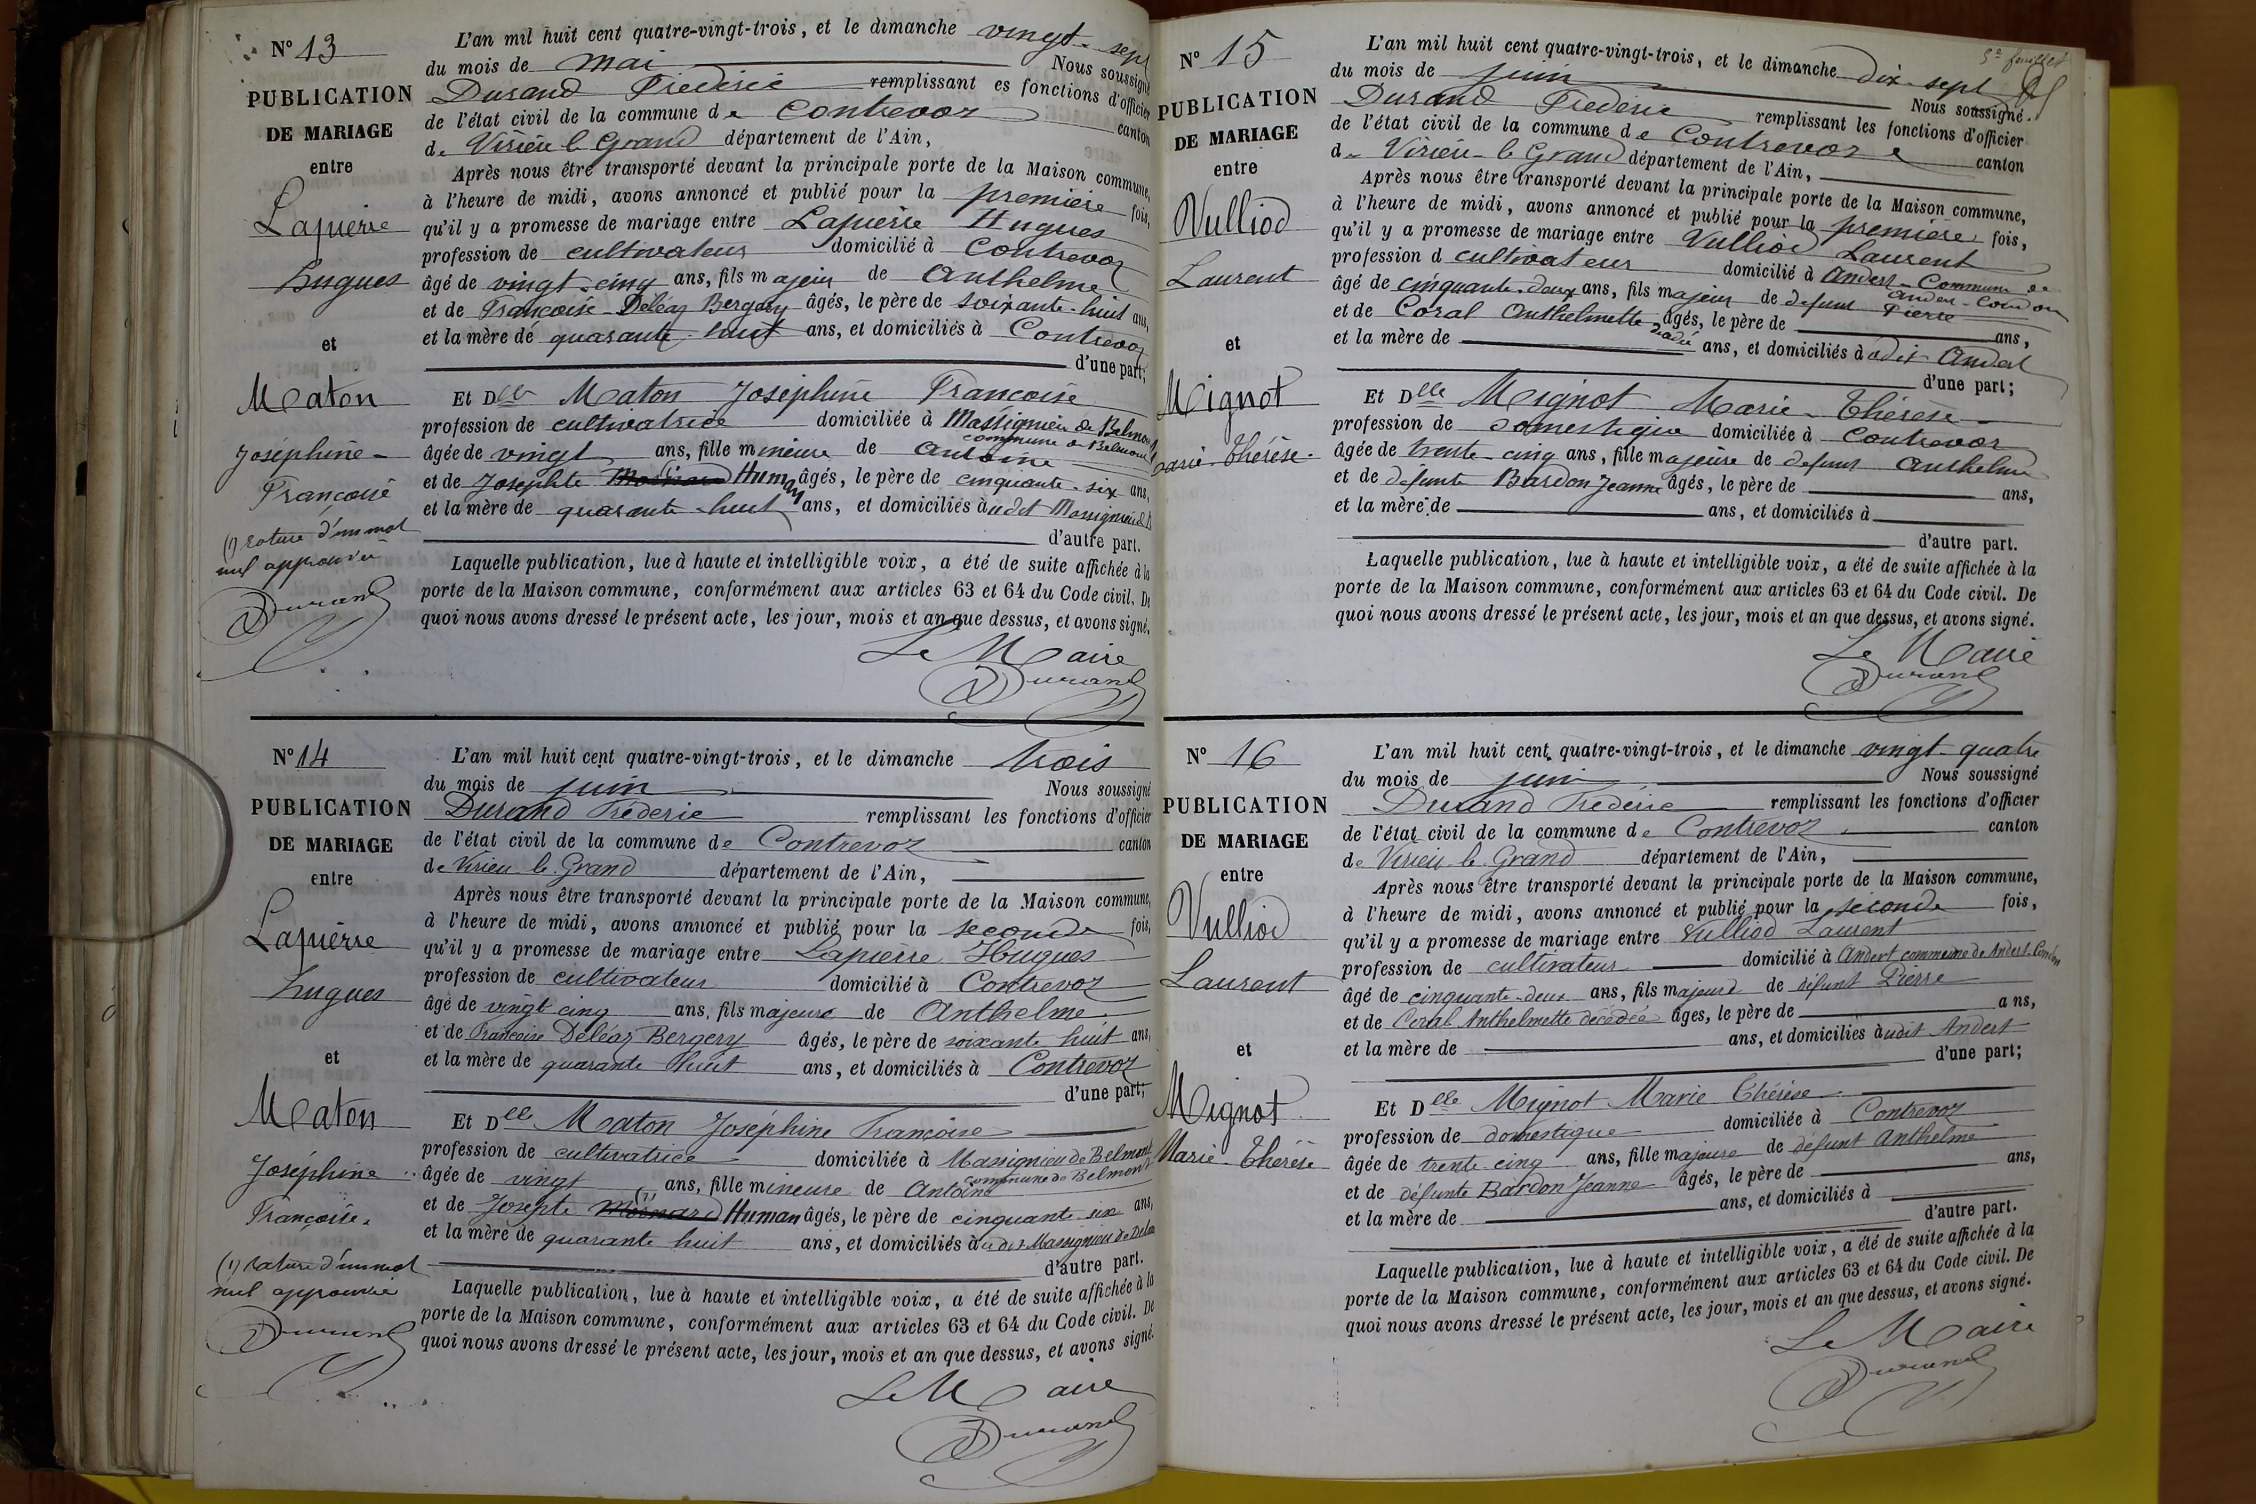 N° 13
PUBLICATION
DE MARIAGE
entre
Lapierre
Hugues
et
Maton
Joséphine
Françoise
(1) rature d'un mot
nul approuvée
Durand
L'an mil huit cent quatre-vingt-trois, et le dimanche vingt-sept
du mois de mai Nous soussigné
Durand Frédéric remplissant es fonctions d'officier
de l'état civil de la commune de Contrevoz canton
de Virieu le Grand département de l'Ain,
Après nous être transporté devant la principale porte de la Maison commune,
à l'heure de midi, avons annoncé et publié pour la première fois,
qu'il y a promesse de mariage entre Lapierre Hugues
profession de cultivateur domicilié à Contrevoz
âgé de vingt-cinq ans, fils majeur de Anthelme
et de Françoise Déléaz Bergery âgés, le père de soixante-huit ans,
et la mère de quarante-huit ans, et domiciliés à Contrevoz
d'une part;
Et Dlle Maton Joséphine Françoise
profession de cultivatrice domiciliée à Massignieu de Belmont
commune de Belmont
âgée de vingt ans, fille mineure de Antoine
et de Josephte Human âgés, le père de cinquante-six ans,
et la mère de quarante-huit ans, et domiciliés à udit Massignieu d B
d'autre part.
Laquelle publication, lue à haute et intelligible voix, a été de suite affichée à la
porte de la Maison commune, conformément aux articles 63 et 64 du Code civil. De
quoi nous avons dressé le présent acte, les jour, mois et an que dessus, et avons signé.
Le Maire
Durand
N° 14
PUBLICATION
DE MARIAGE
entre
Lapierre
Hugues
et
Maton
Joséphine
Françoise
(1) rature d'un mot
nul approuvée
Durand
L'an mil huit cent quatre-vingt-trois, et le dimanche trois
du mois de juin Nous soussigné
Durand Frédéric remplissant les fonctions d'officier
de l'état civil de la commune de Contrevoz canton
de Virieu le Grand département de l'Ain,
Après nous être transporté devant la principale porte de la Maison commune,
à l'heure de midi, avons annoncé et publié pour la seconde fois,
qu'il y a promesse de mariage entre Lapierre Hugues
profession de cultivateur domicilié à Contrevoz
âgé de vingt cinq ans, fils majeur de Anthelme
et de Françoise Déléaz Bergery âgés, le père de soixante huit ans,
et la mère de quarante huit ans, et domiciliés à Contrevoz
d'une part;
Et Dlle Maton Joséphine Françoise
profession de cultivatrice domiciliée à Massignieu de Belmont
commune de Belmont
âgée de vingt ans, fille mineure de Antoine
et de Josephte (1) Human âgés, le père de cinquante six ans,
et la mère de quarante huit ans, et domiciliés à udit Massignieu de Belm
d'autre part.
Laquelle publication, lue à haute et intelligible voix, a été de suite affichée à la
porte de la Maison commune, conformément aux articles 63 et 64 du Code civil. De
quoi nous avons dressé le présent acte, les jour, mois et an que dessus, et avons signé.
Le Maire
Durand
5e feuillet
N° 15
PUBLICATION
DE MARIAGE
entre
Vulliod
Laurent
et
Mignot
Marie-Thérèse
L'an mil huit cent quatre-vingt-trois, et le dimanche dix-sept
du mois de juin Nous soussigné
Durand Frédéric remplissant les fonctions d'officier
de l'état civil de la commune de Contrevoz canton
de Virieu-le Grand département de l'Ain,
Après nous être transporté devant la principale porte de la Maison commune,
à l'heure de midi, avons annoncé et publié pour la première fois,
qu'il y a promesse de mariage entre Vulliod Laurent
profession d cultivateur domicilié à Andert-Commune de
Andert-Condon
âgé de cinquante-deux ans, fils majeur de defunt Pierre
et de Coral Anthelmette décédée âgés, le père de ans,
et la mère de ans, et domiciliés à udit Andert
d'une part;
Et Dlle Mignot Marie-Thérèse
profession de domestique domiciliée à Contrevoz
âgée de trente-cinq ans, fille majeure de défunt Anthelme
et de défunte Bardon Jeanne âgés, le père de ans,
et la mère de ans, et domiciliés à
d'autre part.
Laquelle publication, lue à haute et intelligible voix, a été de suite affichée à la
porte de la Maison commune, conformément aux articles 63 et 64 du Code civil. De
quoi nous avons dressé le présent acte, les jour, mois et an que dessus, et avons signé.
Le Maire
Durand
N° 16
PUBLICATION
DE MARIAGE
entre
Vulliod
Laurent
et
Mignot
Marie-Thérèse
L'an mil huit cent quatre-vingt-trois, et le dimanche vingt-quatre
du mois de juin Nous soussigné
Durand Frédéric remplissant les fonctions d'officier
de l'état civil de la commune de Contrevoz canton
de Virieu-le-Grand département de l'Ain,
Après nous être transporté devant la principale porte de la Maison commune,
à l'heure de midi, avons annoncé et publié pour la seconde fois,
qu'il y a promesse de mariage entre Vulliod Laurent
profession de cultivateur domicilié à Andert commune de Andert-Condon
âgé de cinquante-deux ans, fils majeur de défunt Pierre
et de Coral Anthelmette décédée âgés, le père de ans,
et la mère de ans, et domiciliés à udit Andert
d'une part;
Et Dlle Mignot Marie Thérèse
profession de domestique domiciliée à Contrevoz
âgée de trente-cinq ans, fille majeure de défunt Anthelme
et de défunte Bardon Jeanne âgés, le père de ans,
et la mère de ans, et domiciliés à
d'autre part.
Laquelle publication, lue à haute et intelligible voix, a été de suite affichée à la
porte de la Maison commune, conformément aux articles 63 et 64 du Code civil. De
quoi nous avons dressé le présent acte, les jour, mois et an que dessus, et avons signé.
Le Maire
Durand